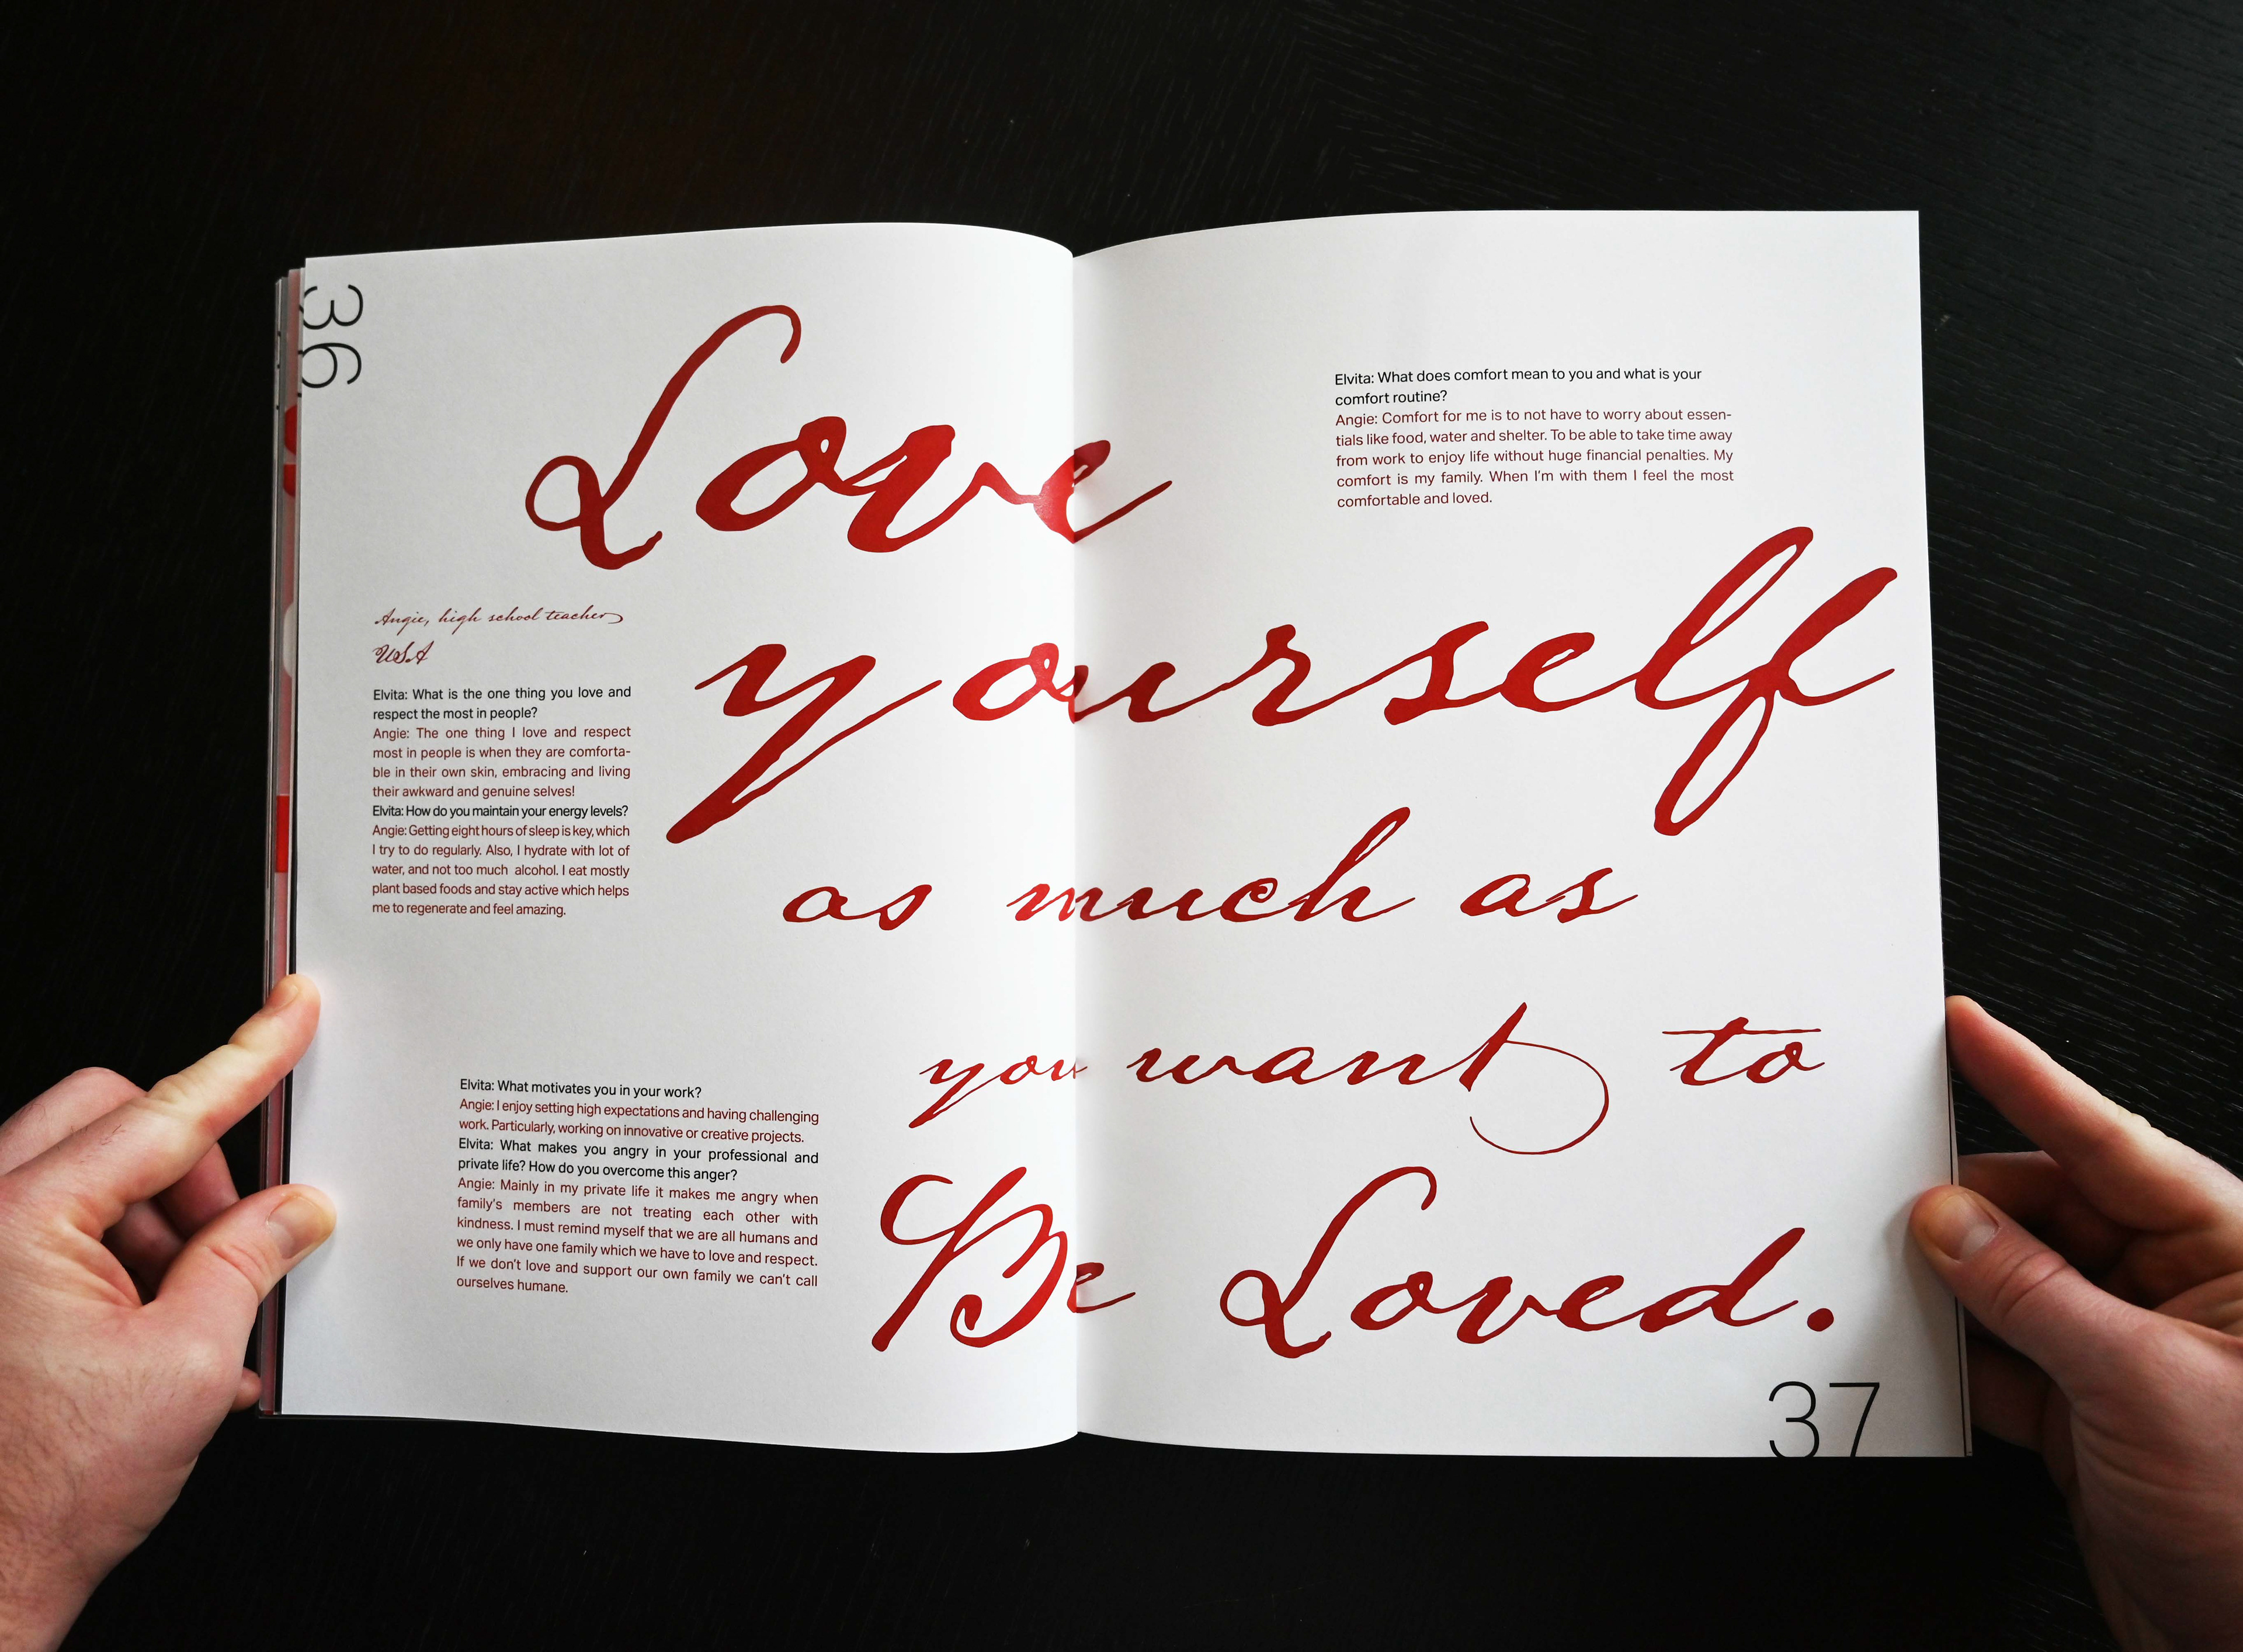 36
Love
yourself
as much as
you want to
Be Loved.
Angie, high school teacher
USA
Elvita: What is the one thing you love and
respect the most in people?
Angie: The one thing I love and respect
most in people is when they are comforta-
ble in their own skin, embracing and living
their awkward and genuine selves!
Elvita: How do you maintain your energy levels?
Angie: Getting eight hours of sleep is key, which
I try to do regularly. Also, I hydrate with lot of
water, and not too much alcohol. I eat mostly
plant based foods and stay active which helps
me to regenerate and feel amazing.
Elvita: What motivates you in your work?
Angie: I enjoy setting high expectations and having challenging
work. Particularly, working on innovative or creative projects.
Elvita: What makes you angry in your professional and
private life? How do you overcome this anger?
Angie: Mainly in my private life it makes me angry when
family's members are not treating each other with
kindness. I must remind myself that we are all humans and
we only have one family which we have to love and respect.
If we don't love and support our own family we can't call
ourselves humane.
Elvita: What does comfort mean to you and what is your
comfort routine?
Angie: Comfort for me is to not have to worry about essen-
tials like food, water and shelter. To be able to take time away
from work to enjoy life without huge financial penalties. My
comfort is my family. When I'm with them I feel the most
comfortable and loved.
37